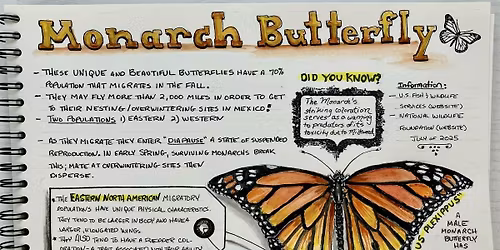 Monarch Butterfly
- THESE UNIQUE AND BEAUTIFUL BUTTERFLIES HAVE A 70%
POPULATION THAT MIGRATES IN THE FALL.
- THEY MAY FLY MORE THAN 2,000 MILES IN ORDER TO GET
TO THEIR NESTING/OVERWINTERING SITES IN MEXICO!
- TWO POPULATIONS 1) EASTERN 2) WESTERN
- AS THEY MIGRATE THEY ENTER "DIAPAUSE" A STATE OF SUSPENDED
REPRODUCTION. IN EARLY SPRING, SURVIVING MONARCHS BREAK
THIS; MATE AT OVERWINTERING SITES THEN
DISPERSE.
DID YOU KNOW?
The Monarch's
striking coloration
serves as a warning
to predators of its
toxicity due to
Information:
- U.S. FISH & WILDLIFE
SERVICES (WEBSITE)
- NATIONAL WILDLIFE
FOUNDATION (WEBSITE)
JULY OF 2025
• THE EASTERN NORTH AMERICAN MIGRATORY
POPULATIONS HAVE UNIQUE PHYSICAL CHARACTERISTICS.
THEY TEND TO BE LARGER IN BODY AND HAVE A
LARGER, ELONGATED WINGS.
• THEY ALSO TEND TO HAVE A REDDER COL-
ORATION - A TRAIT ASSOCIATED
PLEXIPPUS
A
MALE
MONARCH
BUTTERFLY
HAS